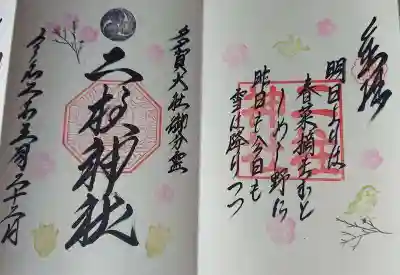 奉拝
明日よりは
春菜摘まむと
しめし野に
昨日も今日も
雪は降りつつ
多賀大社御分霊
二柱神社
令和 年三月二十 日